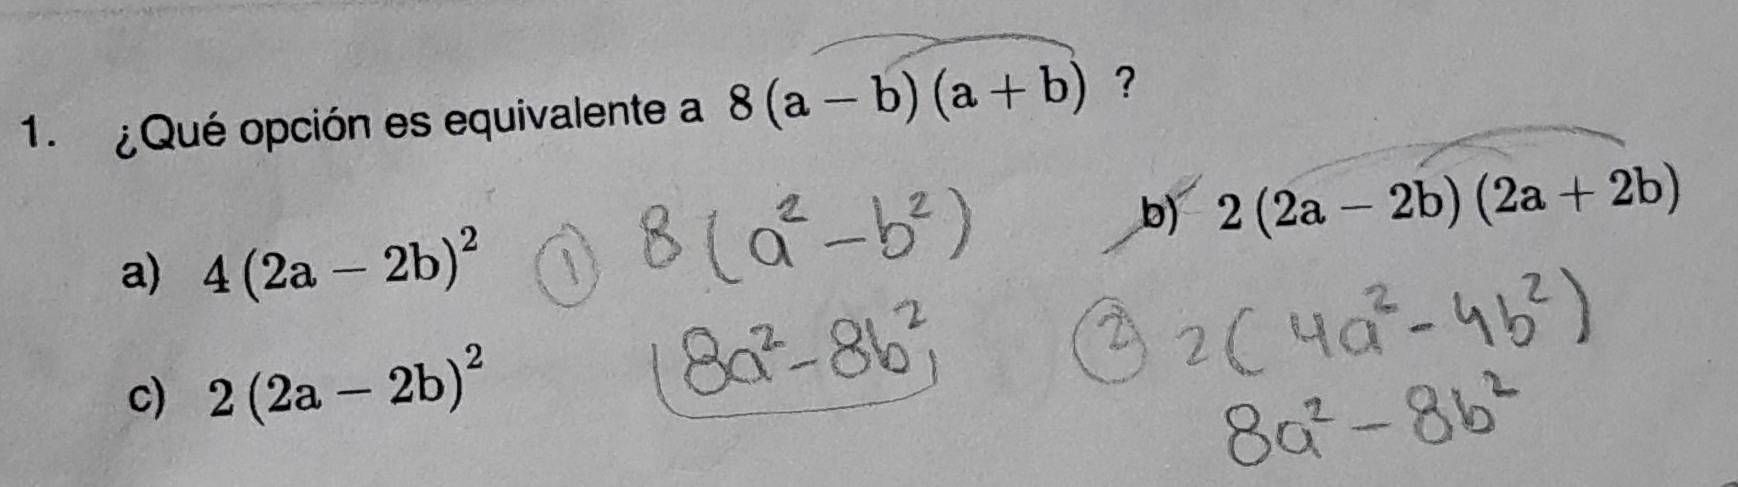 1. ¿Qué opción es equivalente a 8 (a − b) (a + b) ?
a) 4 (2a − 2b)²
① 8 (a² − b²)
8a² − 8b²
b) 2 (2a − 2b) (2a + 2b)
② 2 ( 4a² − 4b² )
8a² − 8b²
c) 2 (2a − 2b)²